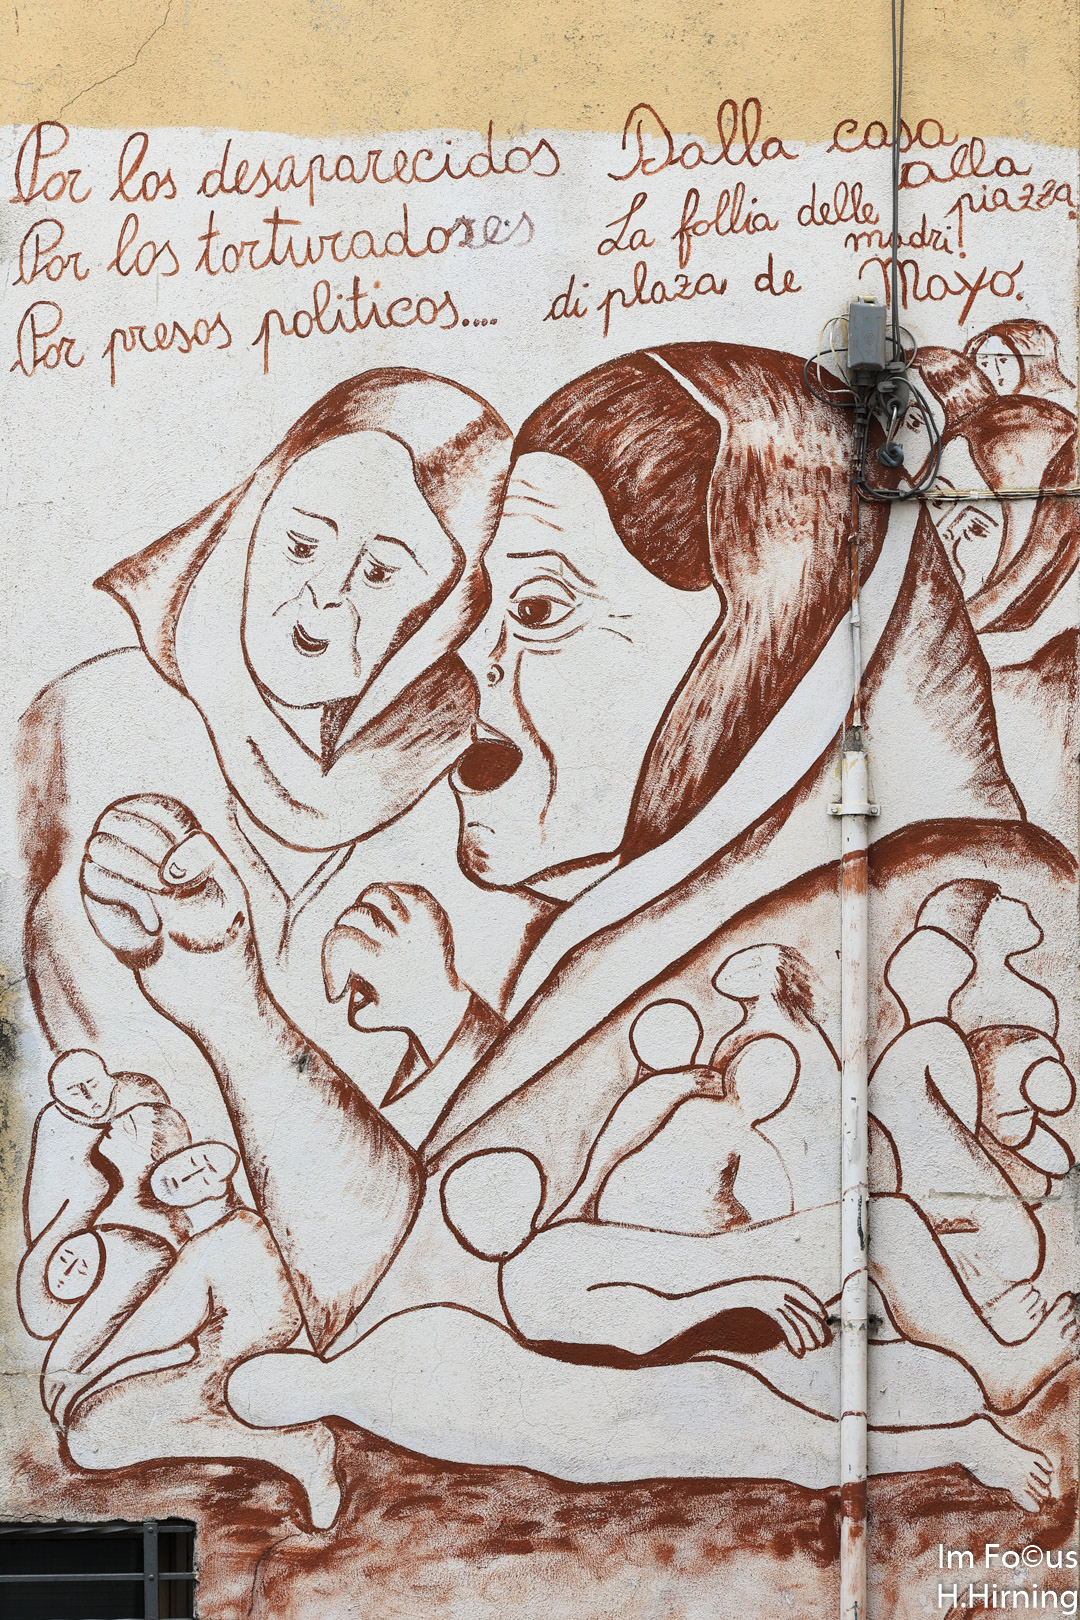 Por los desaparecidos
Por los torturadores
Por presos politicos....
Dalla casa
alla
piazza.
La follia delle
madri!
di plaza de Mayo.
Im Fo©us
H.Hirning